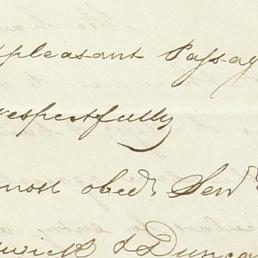 pleasant Passag
respectfully
most obedt Servt
wick & Dunca